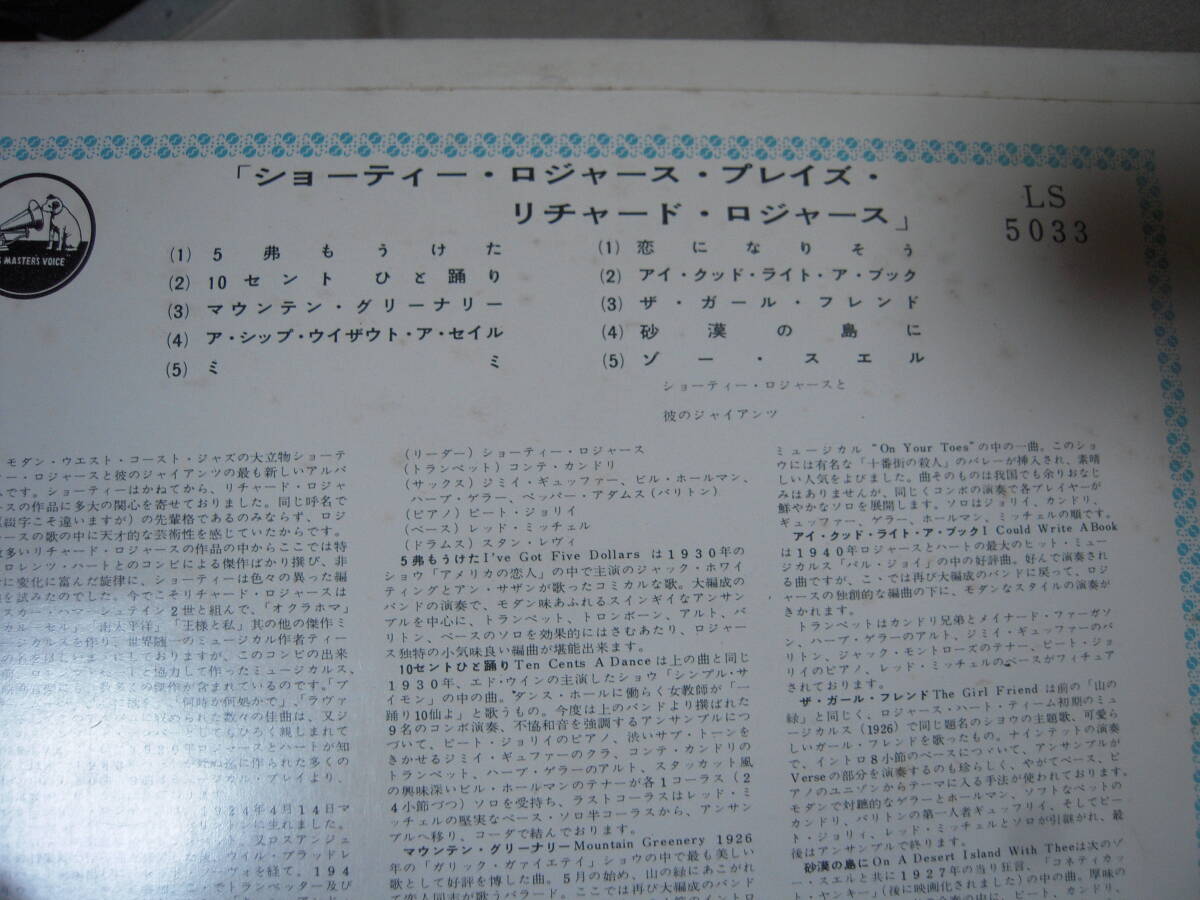 「ショーティー・ロジャース・プレイズ・
リチャード・ロジャース」
LS
5033
S MASTER'S VOICE"
(1) 5弗もうけた
(2) 10セント ひと踊り
(3) マウンテン・グリーナリー
(4) ア・シップ・ウイザウト・ア・セイル
(5) ミミ
(1) 恋になりそう
(2) アイ・クッド・ライト・ア・ブック
(3) ザ・ガール・フレンド
(4) 砂漠の島に
(5) ゾー・スエル
ショーティー・ロジャースと
彼のジャイアンツ
モダン・ウエスト・コースト・ジャズの大立物ショーテ
ー・ロジャースと彼のジャイアンツの最も新しいアルバ
ムです。ショーティーはかねてから、リチャード・ロジャ
ースの作品に多大の関心を寄せておりました。同じ呼名で
綴字こそ違いますが）の先輩格であるのみならず、ロジ
ャースの歌の中に天才的な芸術性を感じていたからです。
数多いリチャード・ロジャースの作品の中からここでは特
ロレンツ・ハートとのコンビによる傑作ばかり撰び、非
に変化に富んだ旋律に、ショーティーは色々の異った編
を試みたのでした。今でこそリチャード・ロジャースは
スカー・ハマーシュテイン2世と組んで、「オクラホマ」
カルーセル」「南太平洋」「王様と私」其の他の傑作ミ
ージカルスを作り、世界随一のミュージカル作者ティー
しておりますが、このコンビの出来
と協力して作ったミュージカルス、
の傑作が含まれているのです。「ブ
何時か何処かで」、「ラヴァ
られた数々の佳曲は、又ジ
してもひろく親しまれて
ースとハートが知
に作られた多くの
ージカル・プレイより、
924年4月14日マ
ンに生れました。
又ロスアンジェ
ウイル・ブラッドレ
ヴィを経て、194
でトランペッター及び
(リーダー) ショーティー・ロジャース
(トランペット) コンテ・カンドリ
(サックス) ジミイ・ギュッファー、ビル・ホールマン、
ハーブ・ゲラー、ペッパー・アダムス(バリトン)
(ピアノ) ピート・ジョリイ
(ベース) レッド・ミッチェル
(ドラムス) スタン・レヴィ
5弗もうけた I've Got Five Dollars は1930年の
ショウ「アメリカの恋人」の中で主演のジャック・ホワイ
ティングとアン・サザンが歌ったコミカルな歌。大編成の
バンドの演奏で、モダン味あふれるスインギイなアンサン
ブルを中心に、トランペット、トロンボーン、アルト、バ
リトン、ベースのソロを効果的にはさむあたり、ロジャー
ス独特の小気味良い編曲が堪能出来ます。
10セントひと踊り Ten Cents A Dance は上の曲と同じ
1930年、エド・ウインの主演したショウ「シンプル・サ
イモン」の中の曲。ダンス・ホールに働らく女教師が「一
踊り10仙よ」と歌うもの。今度は上のバンドより撰ばれた
9名のコンボ演奏、不協和音を強調するアンサンブルにつ
づいて、ピート・ジョリイのピアノ、渋いサブ・トーンを
きかせるジミイ・ギュファーのクラ、コンテ・カンドリの
トランペット、ハーブ・ゲラーのアルト、スタッカット風
の興味深いビル・ホールマンのテナーが各1コーラス（2
4小節づつ）ソロを受持ち、ラストコーラスはレッド・ミ
ッチェルの堅実なベース・ソロ半コーラスから、アンサン
ブルへ移り、コーダで結んでおります。
マウンテン・グリーナリー Mountain Greenery 1926
年の「ガリック・ガァイエテイ」ショウの中で最も美しい
歌として好評を博した曲。5月の始め、山の緑にあこがれ
て恋人同志が歌うバラード。ここでは再び大編成のバンド
ミュージカル “On Your Toes”の中の一曲。このショ
ウには有名な「十番街の殺人」のバレーが挿入され、素晴
しい人気をよびました。曲そのものは我国でも余りおなじ
みはありませんが、同じくコンボの演奏で各プレイヤーが
鮮やかなソロを展開します。ソロはジョリイ、カンドリ、
ギュッファー、ゲラー、ホールマン、ミッチェルの順です。
アイ・クッド・ライト・ア・ブック I Could Write A Book
は1940年ロジャースとハートの最大のヒット・ミュー
ジカルス「パル・ジョイ」の中の好評曲。好んで演奏され
る曲ですが、こゝでは再び大編成のバンドに戻って、ロジ
ャースの独創的な編曲の下に、モダンなスタイルの演奏が
きかれます。
トランペットはカンドリ兄弟とメイナード・ファーガソ
ン、ハーブ・ゲラーのアルト、ジミイ・ギュファーのバ
リトン、ジャック・モントローズのテナー、ピート・ジョ
リイのピアノ、レッド・ミッチェルのベースがフィチュア
されております。
ザ・ガール・フレンド The Girl Friend は前の「山の
緑」と同じく、ロジャース・ハート・ティーム初期のミュ
ージカルス（1926）で同じ題名のショウの主題歌、可愛ら
しいガール・フレンドを歌ったもの。ナインテットの演奏
で、イントロ8小節のベースについで、アンサンブルが
Verse の部分を演奏するのも珍らしく、やがてベース、ピ
アノのユニゾンからテーマに入る手法が使われております。
モダンで対聴的なゲラーとホールマン、ソフトなペットの
カンドリ、バリトンの第一人者ギュッフリイ、そしてピー
ト・ジョリィ、レッド・ミッチェルとソロが引継がれ、最
後はアンサンブルで終ります。
砂漠の島に On A Desert Island With Thee は次のゾ
ー・スエルと共に1927年の当り狂言、「コネティカッ
ト・ヤンキー」（後に映画化されました）の中の曲。厚味の